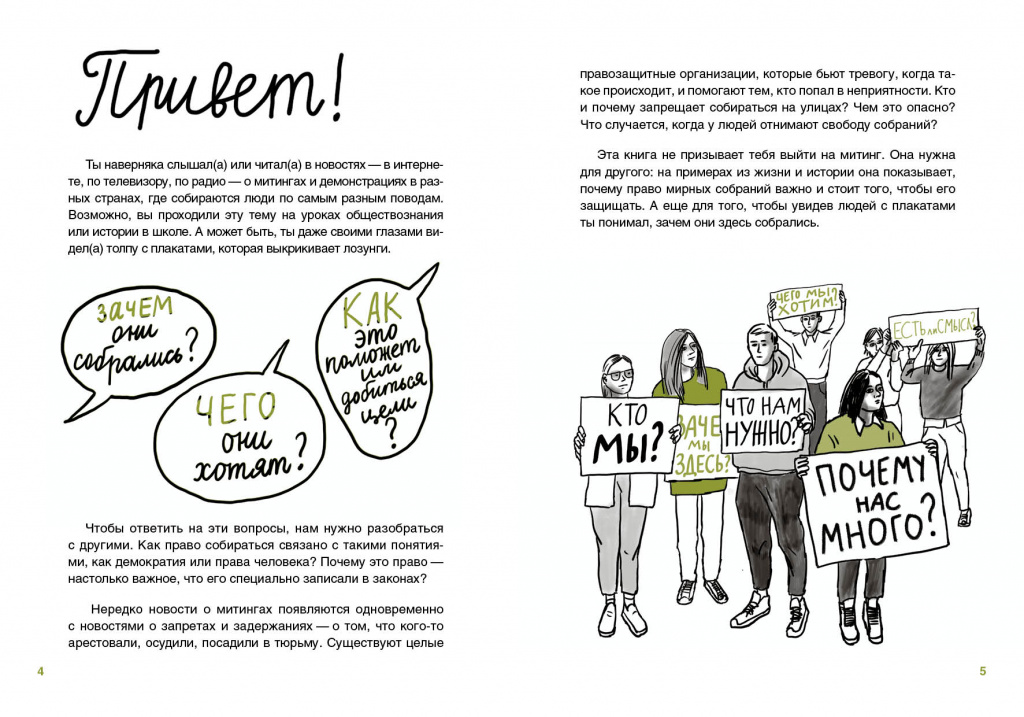 Привет!
Ты наверняка слышал(а) или читал(а) в новостях — в интерне-
те, по телевизору, по радио — о митингах и демонстрациях в раз-
ных странах, где собираются люди по самым разным поводам.
Возможно, вы проходили эту тему на уроках обществознания
или истории в школе. А может быть, ты даже своими глазами ви-
дел(а) толпу с плакатами, которая выкрикивает лозунги.
ЗАЧЕМ
они
собрались?
ЧЕГО
они
хотят?
КАК
это
поможет
или
добиться
цели
?
Чтобы ответить на эти вопросы, нам нужно разобраться
с другими. Как право собираться связано с такими понятия-
ми, как демократия или права человека? Почему это право —
настолько важное, что его специально записали в законах?
Нередко новости о митингах появляются одновременно
с новостями о запретах и задержаниях — о том, что кого-то
арестовали, осудили, посадили в тюрьму. Существуют целые
4
правозащитные организации, которые бьют тревогу, когда та-
кое происходит, и помогают тем, кто попал в неприятности. Кто
и почему запрещает собираться на улицах? Чем это опасно?
Что случается, когда у людей отнимают свободу собраний?
Эта книга не призывает тебя выйти на митинг. Она нужна
для другого: на примерах из жизни и истории она показывает,
почему право мирных собраний важно и стоит того, чтобы его
защищать. А еще для того, чтобы увидев людей с плакатами
ты понимал, зачем они здесь собрались.
ЧЕГО МЫ
ХОТИМ?
ЕСТЬ ли СМЫСЛ?
КТО
МЫ?
ЗАЧЕ
МЫ
ЗДЕСЬ?
ЧТО НАМ
НУЖНО?
ПОЧЕМУ
НАС
МНОГО?
5